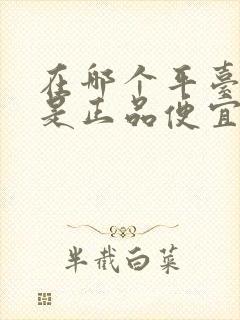 在哪个平臺
是正品便宜
半截白菜